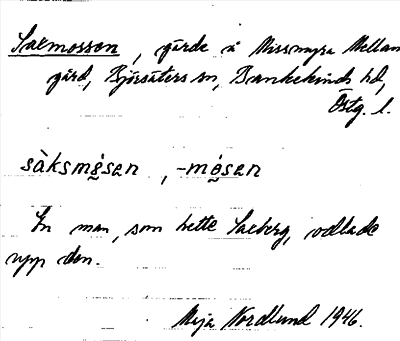 Saxmossen, gärde å Missmyra Mellan-
gård, Björsäters sn, Bankekinds hd,
Östg. l.
sàksmósən, -mósən
En man, som hette Saxberg, odlade
upp den.
Maja Nordlund 1946.